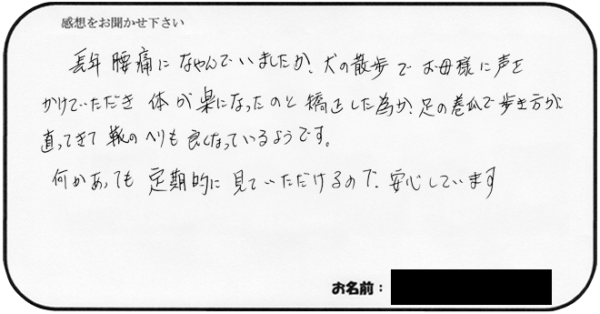 感想をお聞かせ下さい
長年 腰痛に なやんでいましたが、犬の散歩で お母様に声を
かけていただき 体が楽になったのと 矯正した為か、足の巻爪で歩き方が
直ってきて 靴のへりも 良くなっているようです。
何かあっても 定期的に 見ていただけるので、安心しています
お名前：